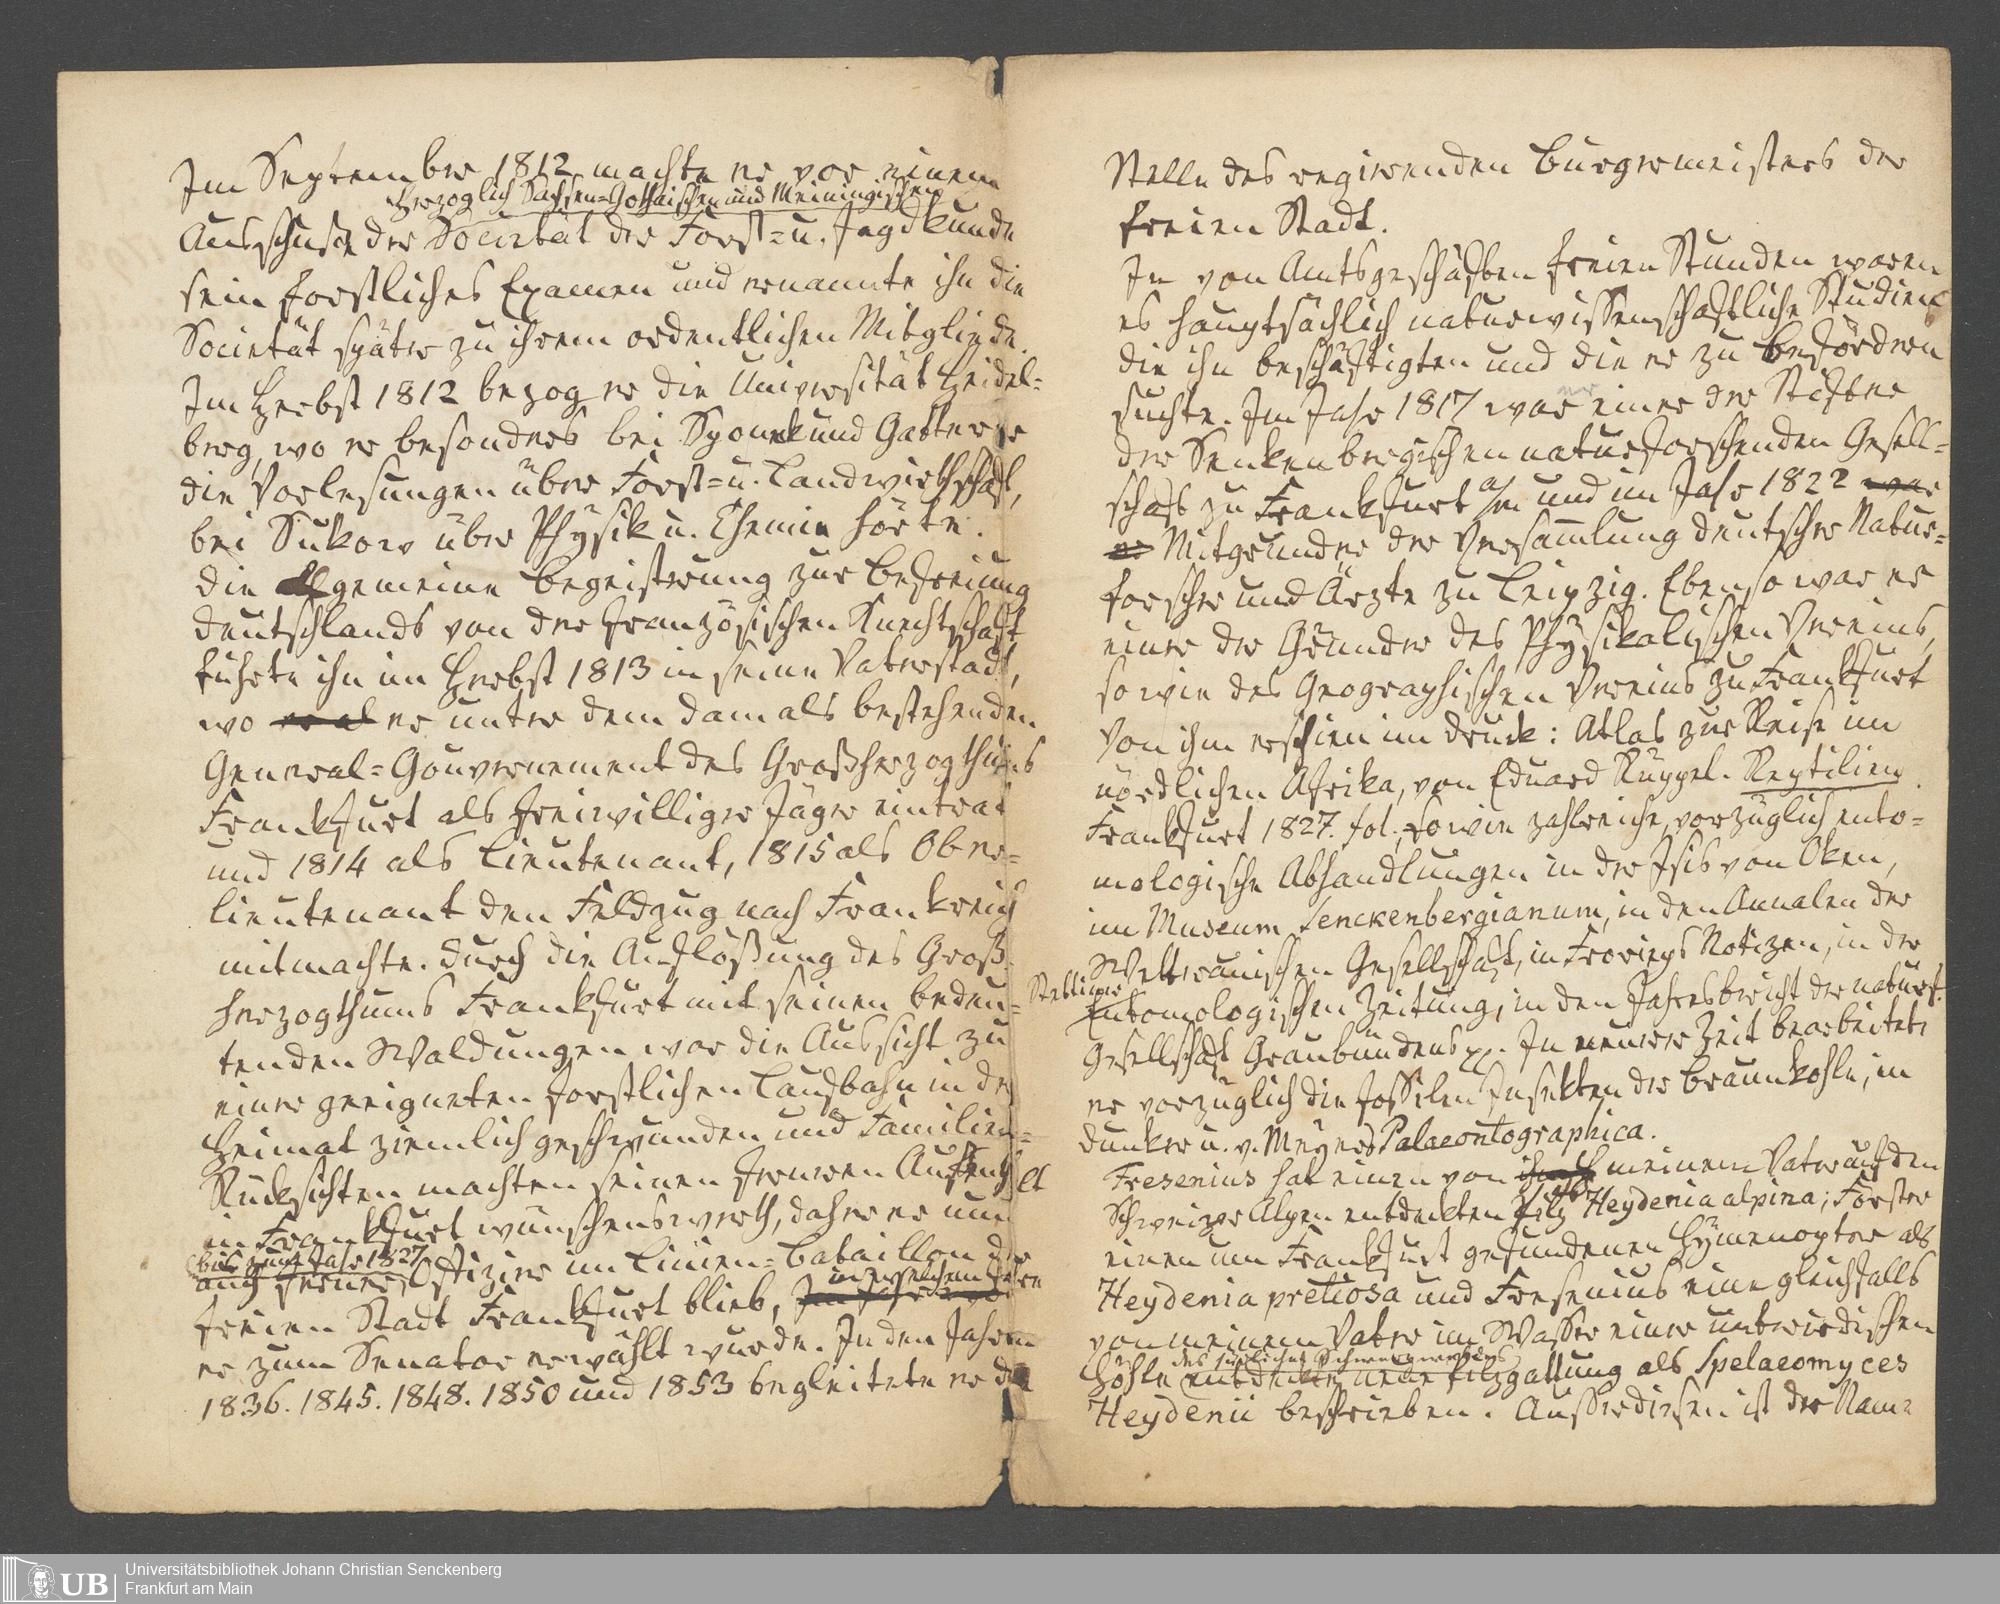 Im September 1812 machte er vor einem
Herzoglich Sachsen-Gothaischen und Meiningischen
Ausschuße der Societät der Forst- u. Jagdkunde
sein forstliches Examen und ernannte ihn die
Societät später zu ihrem ordentlichen Mitgliede.
Im Herbst 1812 bezog er die Universität Heidel-
berg, wo er besonders bei Sponek und Gatterer
die Vorlesungen über Forst- u. Landwirthschaft,
bei Sukow über Physik u. Chemie hörte.
die allgemeine Begeisterung zur Befreiung
deutschlands von der französischen Knechtschaft
führte ihn im Herbst 1813 in seine Vaterstadt,
wo er unter dem damals bestehenden
General-Gouvernement des Großherzogthums
Frankfurt als freiwilliger Jäger eintrat
und 1814 als Lieutenant, 1815 als Ober-
lieutenant den Feldzug nach Frankreich
mitmachte. durch die Auflößung des Groß-
herzogthums Frankfurt mit seinen bedeu-
tenden Waldungen war die Aussicht zu
einer geeigneten forstlichen Laufbahn in der
Heimat ziemlich geschwunden und Familien-
Rücksichten machten seinen ferneren Aufenthalt
in Frankfurt wünschenswerth, daher er nun
bis zum Jahr 1827
auch ferner Offizier im Linien-Bataillon der
in welchem Jahre
freien Stadt Frankfurt blieb,
er zum Senator erwählt wurde. In den Jahren
1836. 1845. 1848. 1850 und 1853 begleitete er die
Stelle des regirenden Bürgermeisters der
freien Stadt.
In von Amtsgeschäften freien Stunden waren
es hauptsächlich naturwissenschaftliche Studien
die ihn beschäftigten und die er zu befördern
suchte. Im Jahr 1817 war er einer der Stifter
der Senkenbergischen naturforschenden Gesell-
schaft zu Frankfurt a/m und im Jahr 1822 war
er Mitgründer der Versammlung deutscher Natur-
forscher und Ärzte zu Leipzig. Ebenso war er
einer der Gründer des Physikalischen Vereins,
sowie des Geographischen Vereins zu Frankfurt
Von ihm erschien im druck: Atlas zur Reise im
nördlichen Afrika, von Eduard Rüppel. Reptilien.
Frankfurt 1827. fol., sowie zahlreiche, vorzüglich ento-
mologische Abhandlungen in der Isis von Oken,
im Museum Senckenbergianum, in den Annalen der
Wetterauischen Gesellschaft, in Frorieps Notizen, in der
Stettiner
Entomologischen Zeitung, in den Jahresbericht der naturf.
Gesellschaft Graubündens pp. In neuerer Zeit bearbeitete
er vorzüglich die fossilen Insekten der Braunkohle, in
dunker u. v. Meyers Palaeontographica.
Fresenius hat einen von meinem Vater auf den
Schweizer Alpen entdeckten Pilz Heydenia alpina; Förster
einen um Frankfurt gefundenen Hymenopter als
Heydenia pretiosa und Fresenius eine gleichfalls
von meinem Vater im Wasser einer unterirdischen
des südlichen Schwarzwaldes
Höhle entdeckte neue Pilzgattung als Spelaeomyces
Heydenii beschrieben. Ausserdiesen ist der Name
UB
Universitätsbibliothek Johann Christian Senckenberg
Frankfurt am Main